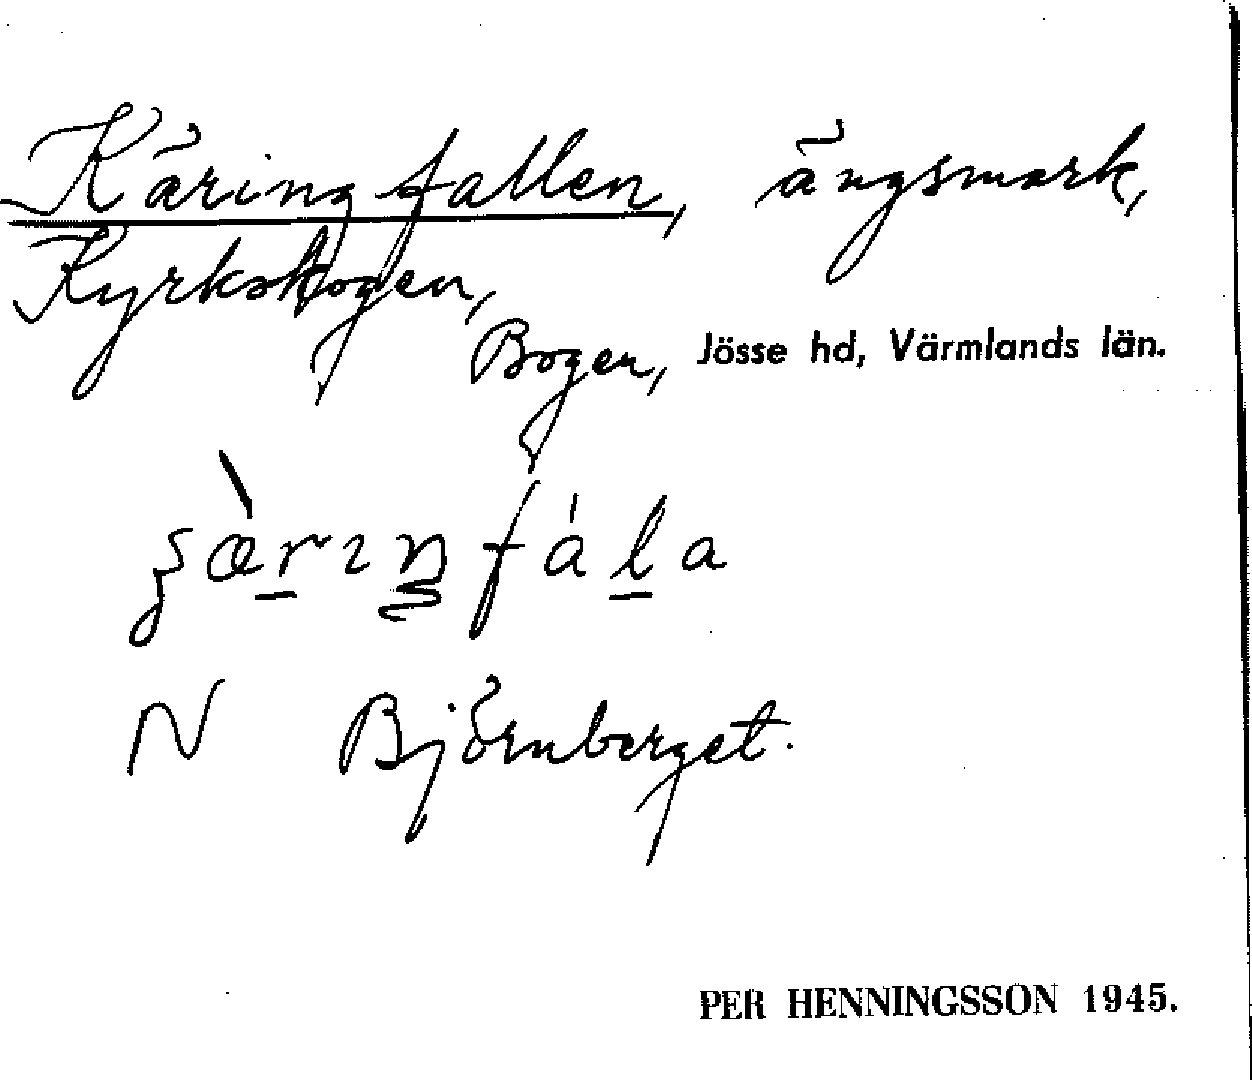 Käringfallen, ängsmark,
Kyrkskogen,
Bogen, Jösse hd, Värmlands län.
N Björnberget.
PER HENNINGSSON 1945.